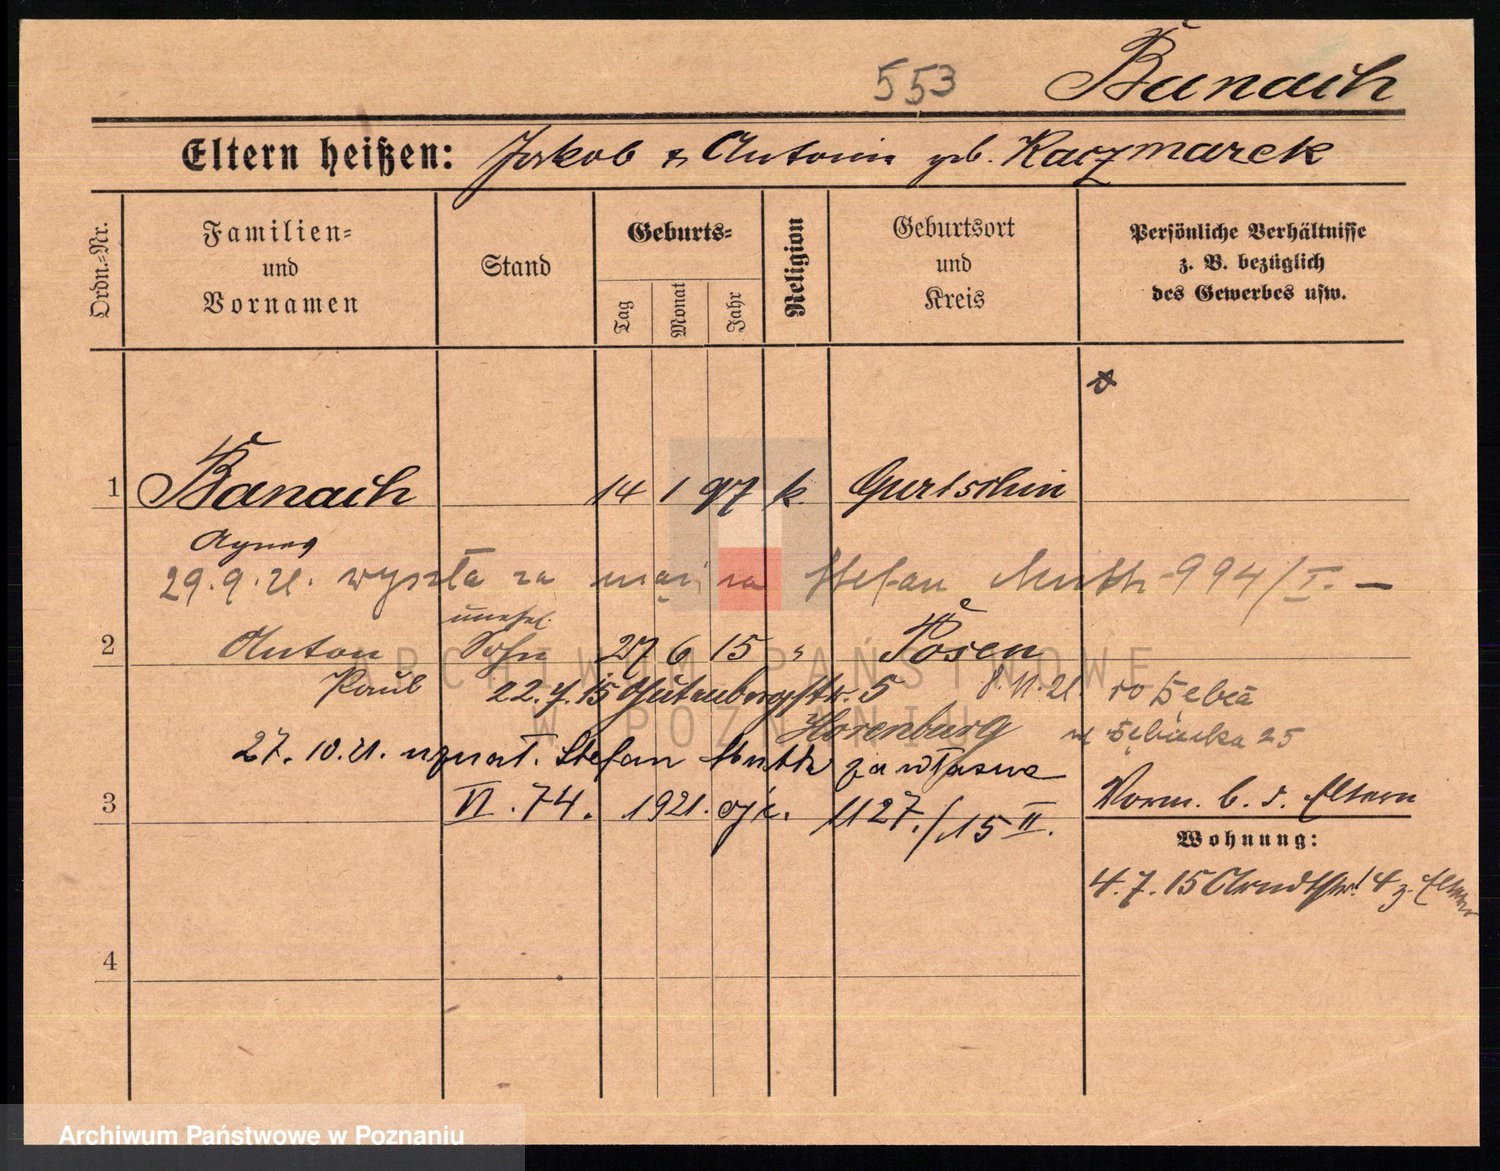 553 Banach
Eltern heißen: Jakob & Antonie geb. Kaczmarek
Ordn.=Nr.
Familien=
und
Vornamen
Stand
Geburts=
Tag
Monat
Jahr
Religion
Geburtsort
und
Kreis
Persönliche Verhältnisse
z. B. bezüglich
des Gewerbes usw.
1 Banach 14 1 97 k. Gurtschin
Agnes
29.9.21. wyszła za mąż za Stefan 994/I. —
unehel.
2 Anton Sohn 27 6 15 " Posen
Paul 22.7.15 Gutenbergstr. 5
27.10.21. uznał. Stefan za własne
3 VI. 74. 1921. 1127./15 II.
Vorm. b. d. Eltern
Wohnung:
4.7.15 Arndtstr. 4 z. Eltern
4
ARCHIWUM PAŃSTWOWE
W POZNANIU
Archiwum Państwowe w Poznaniu